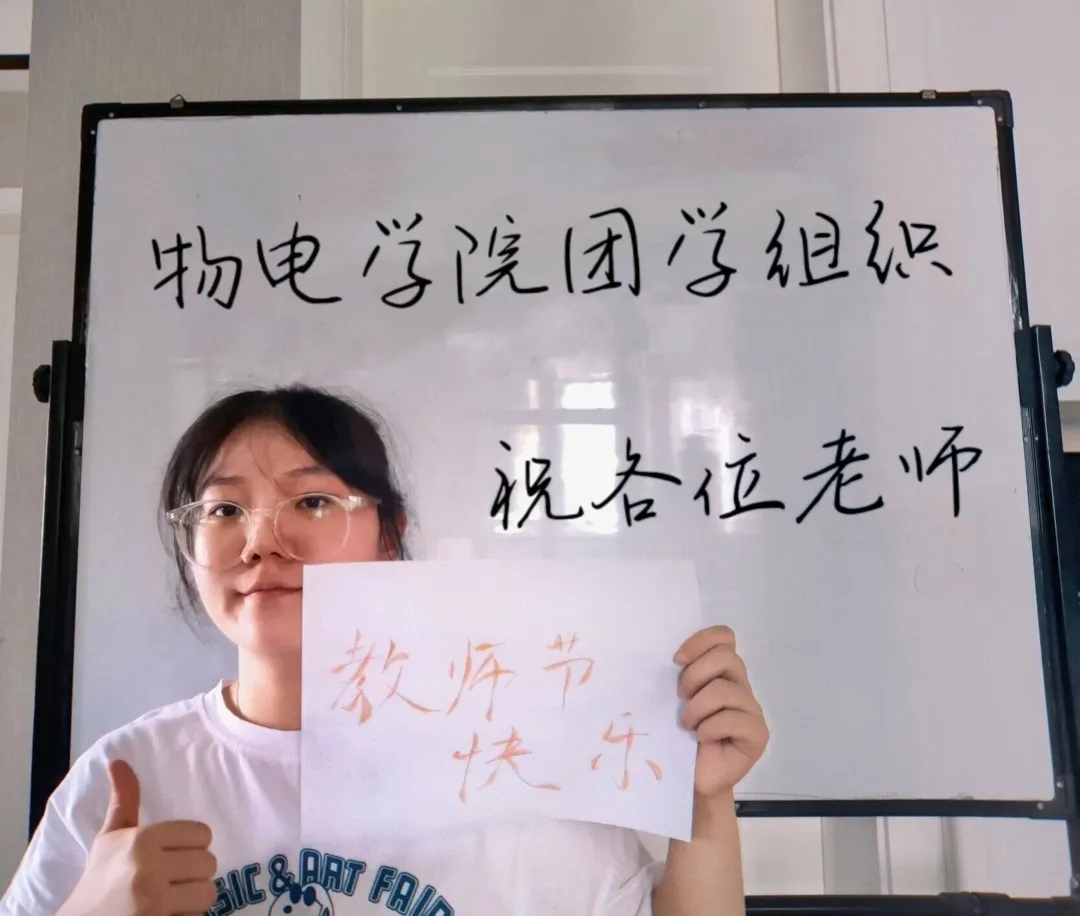 物电学院团学组织
祝各位老师
教师节
快乐
SIC & ART FAIR